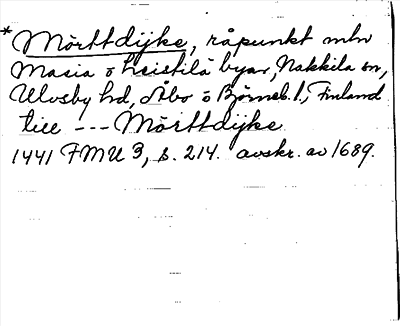 * Mörttdijke, råpunkt mln
Masia o Leistilä byar, Nakkila sn,
Ulvsby hd, Åbo o Björneb. l., Finland
till --- Mörttdijke
1441 FMU 3, s. 214. avskr. av 1689.